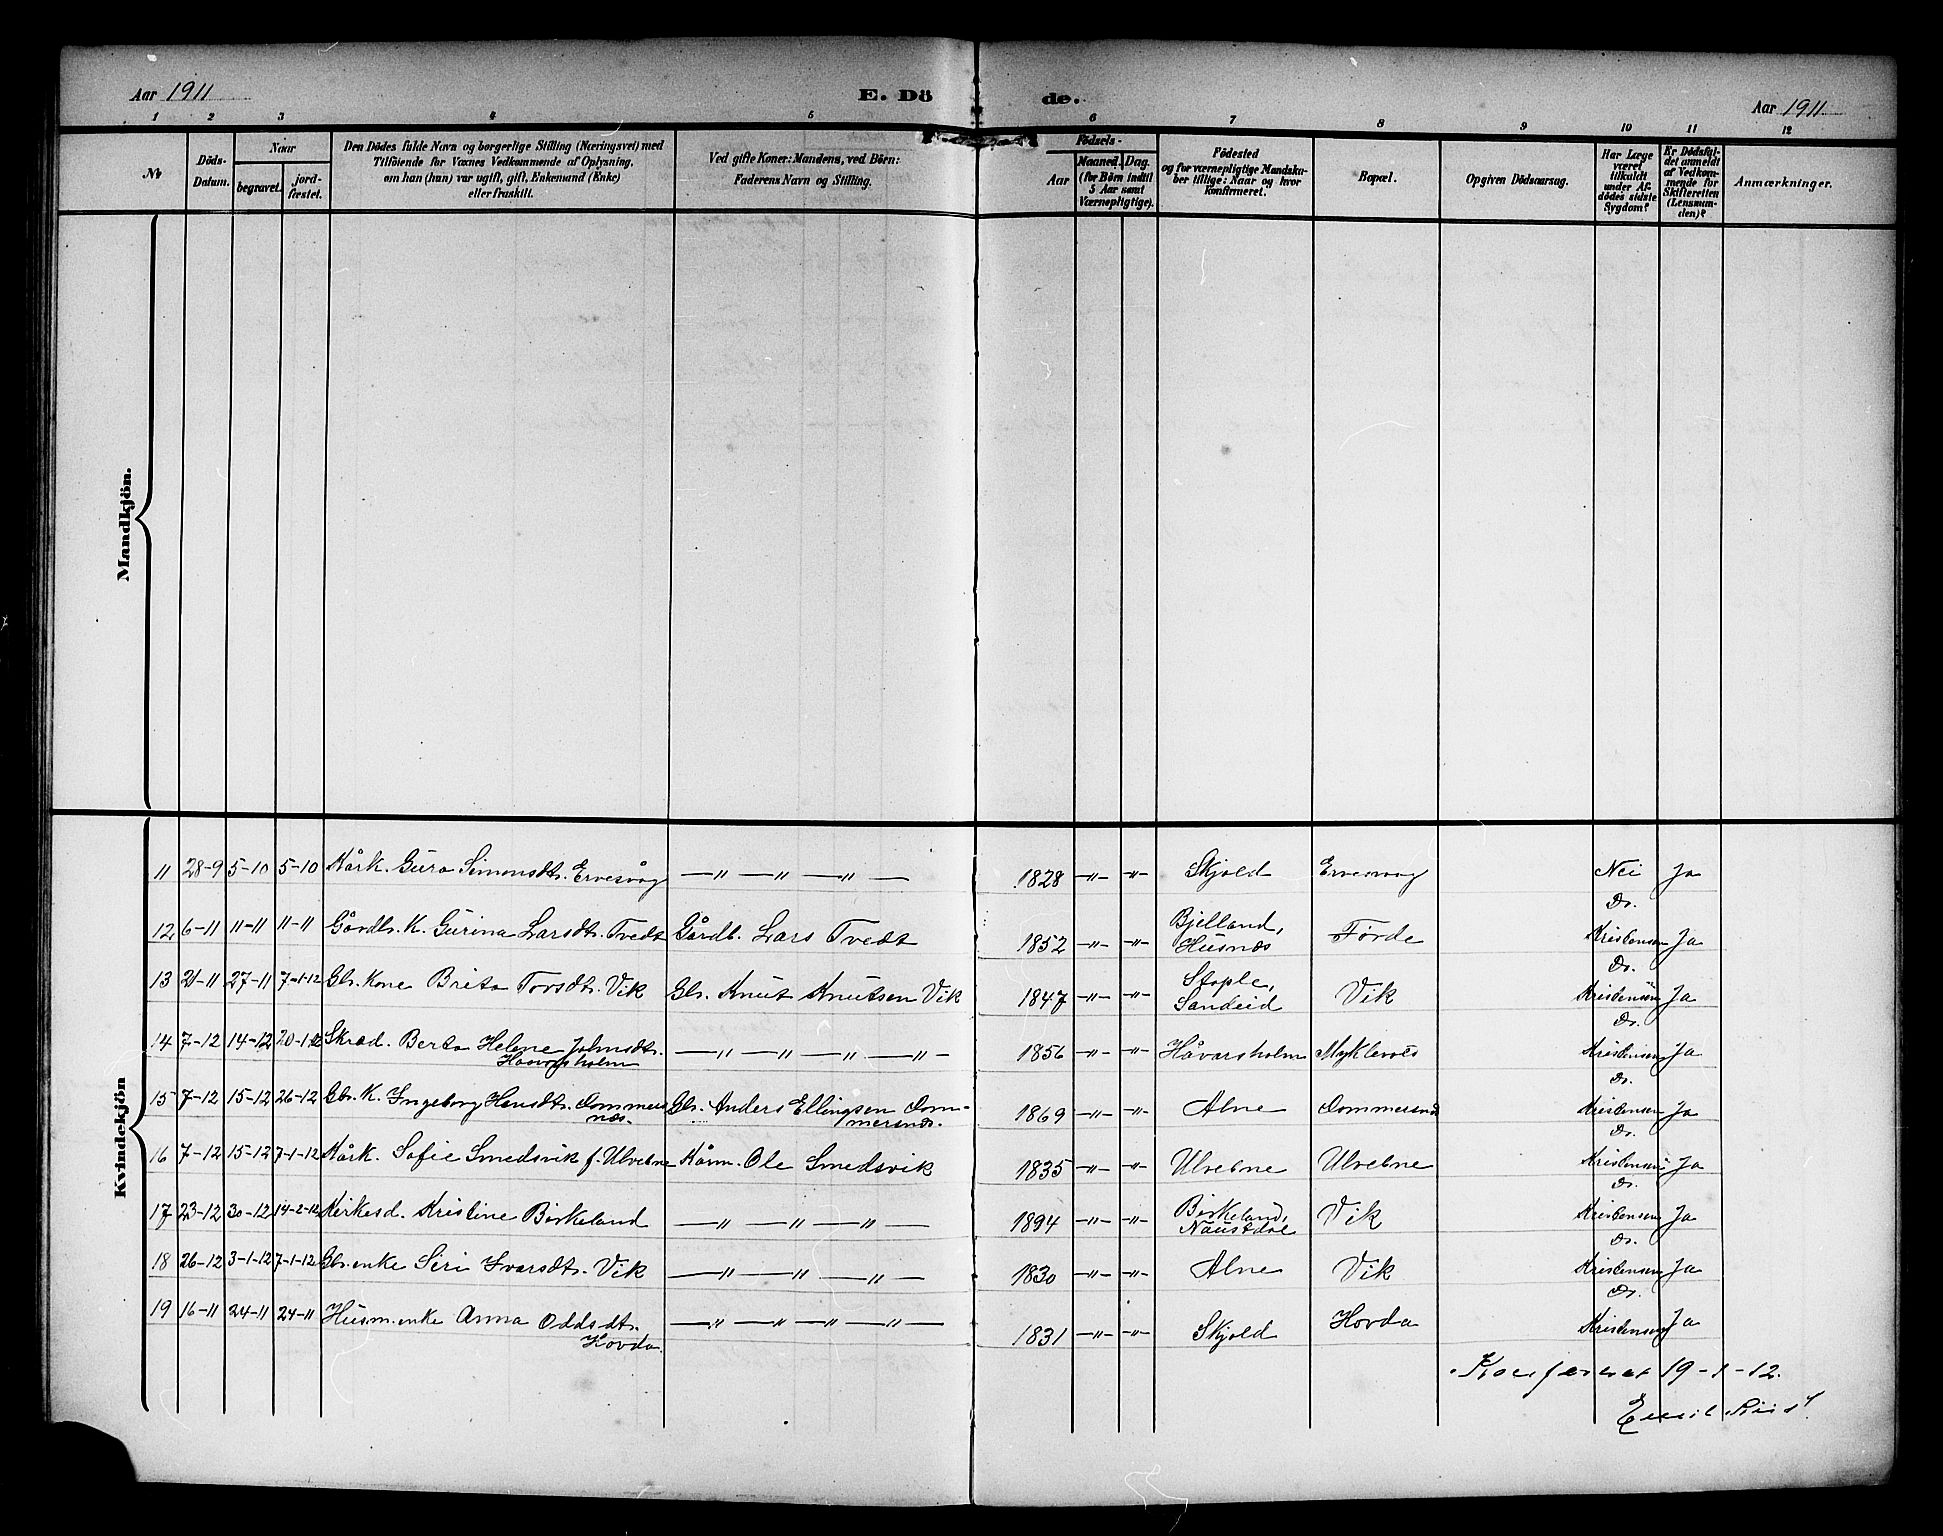 Aar 1911
E. Dö
de.
Aar 1911
1 2 3 4 5 6 7 8 9 10 11 12
No
Döds-
Datum.
Naar
begravet.
jord-
fæstet.
Den Dödes fulde Navn og borgerlige Stilling (Næringsvei) med
Tilföiende for Voxnes Vedkommende af Oplysning,
om han (hun) var ugift, gift, Enkemand (Enke)
eller fraskilt.
Ved gifte Koner: Mandens, ved Börn:
Faderens Navn og Stilling.
Födsels-
Aar
Maaned. Dag.
(for Börn indtil
5 Aar samt
Værnepligtige).
Födested
og for værnepligtige Mandsku-
ber tillige: Naar og hvor
konfirmeret.
Bopæl.
Opgiven Dödsaarsag.
Har Læge
været
tilkaldt
under Af-
dödes sidste
Sygdom?
Er Dödsfal-
det anmeldt
af Vedkom-
mende for
Skifteretten
(Lensman-
den)?
Anmærkninger.
Mandkjön.
Kvindekjön
11 28-9 5-10 5-10 Kårk. Guro Simonsdtr. Ervesvåg —"—"—"— 1828 —"— —"— Skjold Ervesvag Nei Ja
12 6-11 11-11 11-11 Gårdbr. K. Gurina Larsdtr. Tvedt Gårdb. Lars Tvedt 1852 —"— —"— Bjelland, Husnæs Förde Dr. Kristensen Ja
13 21-11 27-11 7-1-12 Gbr. Kone Brita Torsdtr. Vik Gbr. Knut Knutsen Vik 1847 —"— —"— Stople, Sandeid Vik Dr. Kristensen Ja
14 7-12 14-12 20-1-12 Skræd. Berta Helene Johnsdtr. Haavarsholm —"—"—"—"— 1856 —"— —"— Håvarsholm Myklevols Dr. Kristensen Ja
15 7-12 15-12 26-12 Gbr. K. Ingeborg Hansdtr. Dommers næs. Gbr. Anders Ellingsen Dom- mersnæs. 1869 —"— —"— Alne Dommersnæs Dr. Kristensen Ja
16 7-12 15-12 7-1-12 Kårk. Sofie Smedsvik f. Ulvebne Kårm. Ole Smedsvik 1835 —"— —"— Ulvebne Ulvebne Dr. Kristensen Ja
17 23-12 30-12 14-2-12 Kirkesd. Kristine Birkeland —"—"—"— 1894 —"— —"— Birkeland, Naustdal Vik Dr. Kristensen Ja
18 26-12 3-1-12 7-1-12 Gbr. enke Siri Ivarsdtr. Vik —"—"—"— 1830 —"— —"— Alne Vik Dr. Kristensen Ja
19 16-11 24-11 24-11 Husm. enke Anna Oddsdtr. Hovda. —"—"—"—"— 1831 —"— —"— Skjold Hovda Dr. Kristensen Ja
Konfereret 19-1-12.
Emil Riis